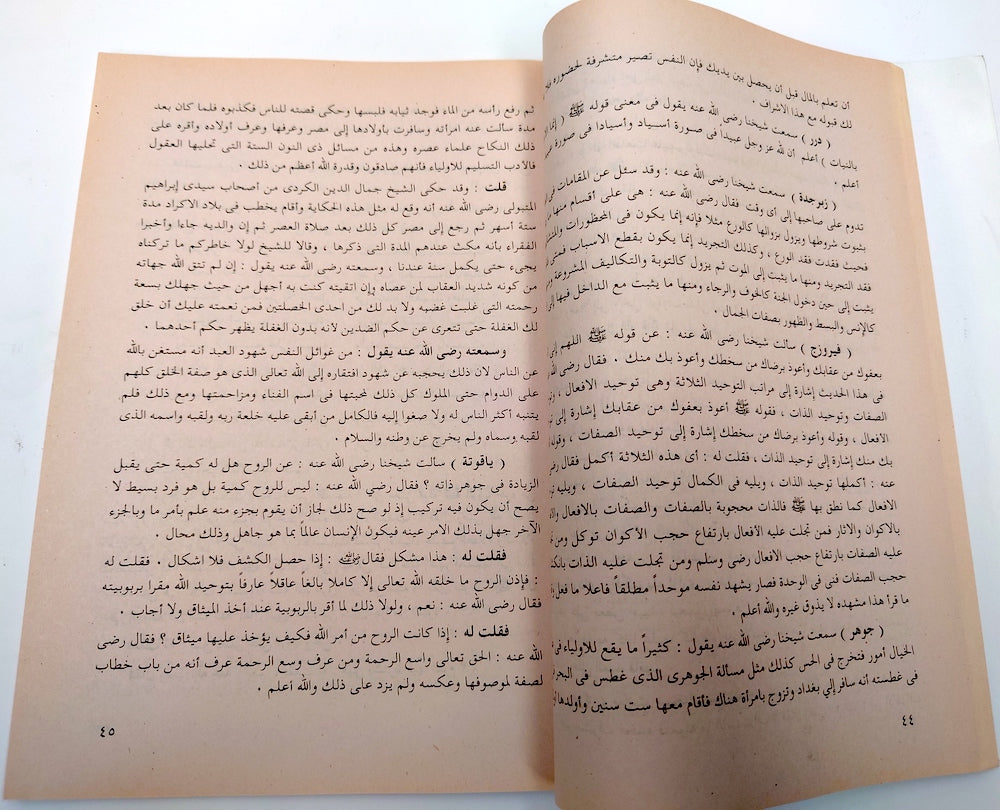 أن تعلم بالمال قبل أن يحصل بين يديك فإن النفس تصير متشرفة لحضوره
لك قبوله مع هذا الاشراف .
( درر ) سمعت شيخنا رضى الله عنه يقول فى معنى قوله ﷺ
بالنيات ) أعلم أن لله عز وجل عبيداً فى صورة أسياد وأسيادا فى صورة
أعلم .
( زبرجدة ) سمعت شيخنا رضى الله عنه : وقد سئل عن المقامات
تدوم على صاحبها إلى أى وقت فقال رضى الله عنه : هى على أقسام منها
بثبوت شروطها ويزول بزوالها كالورع مثلا فإنه إنما يكون فى المحظورات
فحيث فقدت فقد الورع ، وكذلك التجريد إنما يكون بقطع الاسباب
فقد التجريد ومنها ما يثبت إلى الموت ثم يزول كالتوبة والتكاليف المشروعة
يثبت إلى حين دخول الجنة كالخوف والرجاء ومنها ما يثبت مع الداخل فيها
كالإنس والبسط والظهور بصفات الجمال .
( فيروزج ) سألت شيخنا رضى الله عنه : عن قوله ﷺ اللهم إنى
بعفوك من عقابك وأعوذ برضاك من سخطك وأعوذ بك منك . فقال رضى الله
فى هذا الحديث إشارة إلى مراتب التوحيد الثلاثة وهى توحيد الافعال ،
الصفات وتوحيد الذات ، فقوله ﷺ أعوذ بعفوك من عقابك إشارة إلى
الافعال ، وقوله وأعوذ برضاك من سخطك إشارة إلى توحيد الصفات ،
بك منك إشارة إلى توحيد الذات ، فقلت له : أى هذه الثلاثة أكمل فقال
عنه : أكملها توحيد الذات ، ويليه فى الكمال توحيد الصفات ، ويليه
الافعال كما نطق بها ﷺ فالذات محجوبة بالصفات والصفات بالافعال
بالاكوان والآثار فمن تجلت عليه الأفعال بارتفاع حجب الأكوان توكل ومن
عليه الصفات بارتفاع حجب الافعال رضى وسلم ومن تجلت عليه الذات
حجب الصفات فنى فى الوحدة فصار يشهد نفسه موحداً مطلقاً فاعلا ما فعل
ما قرأ هذا مشهده لا يذوق غيره والله أعلم .
( جوهر ) سمعت شيخنا رضى الله عنه يقول : كثيراً ما يقع للاولياء فى
الخيال أمور فتخرج فى الحس كذلك مثل مسألة الجوهرى الذى غطس فى البحر
فى غطسته أنه سافر إلي بغداد وتزوج بامرأة هناك فأقام معها ست سنين وأولدها
٤٤
ثم رفع رأسه من الماء فوجد ثيابه فلبسها وحكى قصته للناس فكذبوه فلما كان بعد
مدة سألت عنه امرأته وسافرت بأولادها إلى مصر وعرفها وعرف أولاده وأقره على
ذلك النكاح علماء عصره وهذه من مسائل ذى النون الستة التى تحليها العقول
فالأدب التسليم للاولياء فأنهم صادقون وقدرة الله أعظم من ذلك .
قلت : وقد حكى الشيخ جمال الدين الكردى من أصحاب سيدى إبراهيم
المتبولى رضى الله عنه أنه وقع له مثل هذه الحكاية وأقام يخطب فى بلاد الاكراد مدة
ستة أسهر ثم رجع إلى مصر كل ذلك بعد صلاة العصر ثم إن والديه جاءا وأخبرا
الفقراء بأنه مكث عندهم المدة التى ذكرها ، وقالا للشيخ لولا خاطركم ما تركناه
يجىء حتى يكمل سنة عندنا ، وسمعته رضى الله عنه يقول : إن لم تتق الله جهاته
من كونه شديد العقاب لمن عصاه وإن اتقيته كنت به أجهل من حيث جهلك بسعة
رحمته التى غلبت غضبه ولا بد لك من احدى الخصلتين فمن نعمته عليك أن خلق
لك الغفلة حتى تتعرى عن حكم الضدين لأنه بدون الغفلة يظهر حكم أحدهما .
وسمعته رضى الله عنه يقول : من غوائل النفس شهود العبد أنه مستغن بالله
عن الناس لان ذلك يحجبه عن شهود افتقاره إلى الله تعالى الذى هو صفة الخلق كلهم
على الدوام حتى الملوك كل ذلك لمحبتها فى اسم الغناء ومزاحمتها ومع ذلك فلم
يتنبه أكثر الناس له ولا صغوا إليه فالكامل من أبقى عليه خلعة ربه ولقبه واسمه الذى
لقبه وسماه ولم يخرج عن وطنه والسلام .
( ياقوتة ) سألت شيخنا رضى الله عنه : عن الروح هل له كمية حتى يقبل
الزيادة فى جوهر ذاته ؟ فقال رضي الله عنه : ليس للروح كمية بل هو فرد بسيط لا
يصح أن يكون فيه تركيب إذ لو صح ذلك لجاز أن يقوم بجزء منه علم بأمر ما وبالجزء
الآخر جهل بذلك الامر عينه فيكون الإنسان عالماً بما هو جاهل وذلك محال .
فقلت له : هذا مشكل فقال رضي الله عنه : إذا حصل الكشف فلا اشكال . فقلت له
: فإذن الروح ما خلقه الله تعالى إلا كاملا بالغاً عاقلاً عارفاً بتوحيد الله مقرا بربوبيته
فقال رضى الله عنه : نعم ، ولولا ذلك لما أقر بالربوبية عند أخذ الميثاق ولا أجاب .
فقلت له : إذا كانت الروح من أمر الله فكيف يؤخذ عليها ميثاق ؟ فقال رضى
الله عنه : الحق تعالى واسع الرحمة ومن عرف وسع الرحمة عرف أنه من باب خطاب
لصفة لموصوفها وعكسه ولم يزد على ذلك والله أعلم .
٤٥